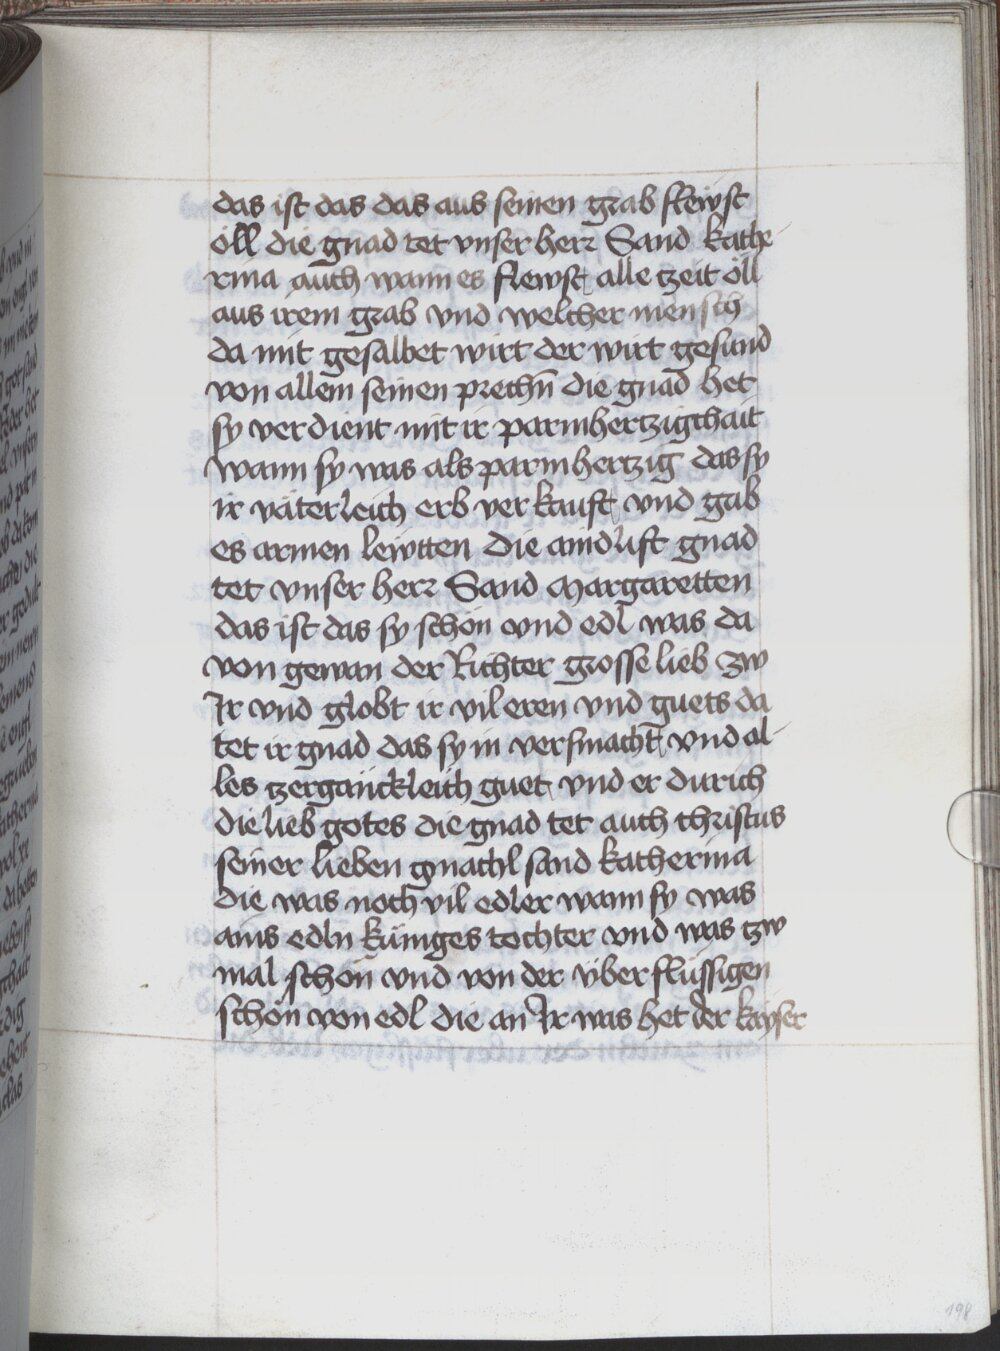 das ist das das aus seinen grab flewst
öll die gnad tet vnser herr Sand kathe
rina auch wann es flewst alle tzeit öll
aus irem grab vnd welicher mensch
da mit gesalbet wirt der wirt gesund
von allem seinen prechn̄ die gnad het
sy verdient mit ir parmhertzigchait
wann sy was als parmhertzig das sy
ir väterleich erb verkauft vnd gab
es armen lewtten die aindlift gnad
tet vnser herr Sand Margaretten
das ist das sy schön vnd edl was da
von gewan der Richter grosse lieb zw
Ir vnd globt ir vil eren vnd guets da
tet ir gnad das sy in versmacht vnd al
les tzergänckleich guet vnd er durich
die lieb gotes die gnad tet auch christus
seiner lieben gmachl sand katherina
die was noch vil edler wann sy was
ains edln küniges tochter vnd was tzw
mal schön vnd von der vberflüssigen
schön von edl die an Ir was het der kayser
198